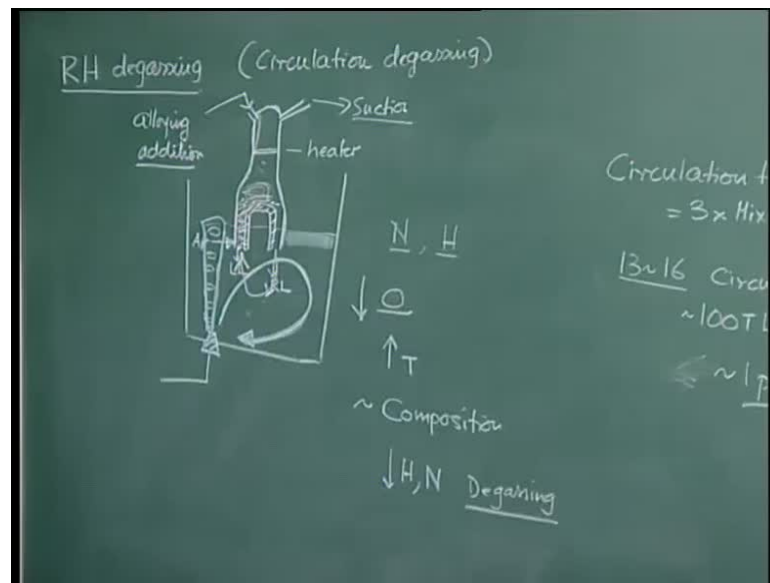 RH degassing (Circulation degassing)
alloying
addition
→ Suction
heater
N, H
↓ O
↑ T
~ Composition
↓ H, N Degassing
Circulation t
= 3 x Mix
13~16 Circu
~100T L
~1 p